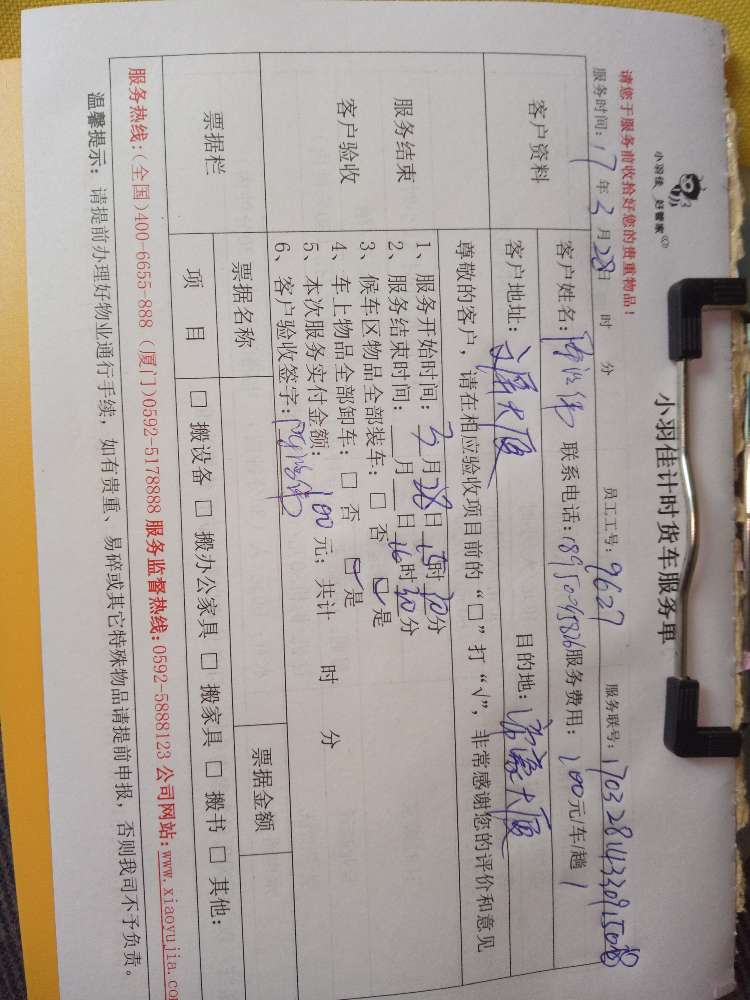 小羽佳 好管家
小羽佳计时货车服务单
请您于服务前收拾好您的贵重物品！
服务时间：17年3月28日 时 分 员工工号：9627 服务联号：
客户资料
客户姓名： 联系电话： 服务费用：100元/车/趟
客户地址： 大厦 目的地： 大厦
服务结束
客户验收
尊敬的客户，请在相应验收项目前的“□”打“√”，非常感谢您的评价和意见
1、服务开始时间：3月28日15时30分
2、服务结束时间：__月__日16时30分
3、候车区物品全部装车：□ 否 ☑ 是
4、车上物品全部卸车：□ 否 ☑ 是
5、本次服务实付金额：100元；共计 时 分
6、客户验收签字：
票据栏
票据名称 票据金额
项 目
□ 搬设备 □ 搬办公家具 □ 搬家具 □ 搬书 □ 其他：
服务热线：(全国)400-6655-888 (厦门)0592-5178888 服务监督热线：0592-5888123 公司网站：www.xiaoyujia.co
温馨提示：请提前办理好物业通行手续，如有贵重、易碎或其它特殊物品请提前申报，否则我司不予负责。